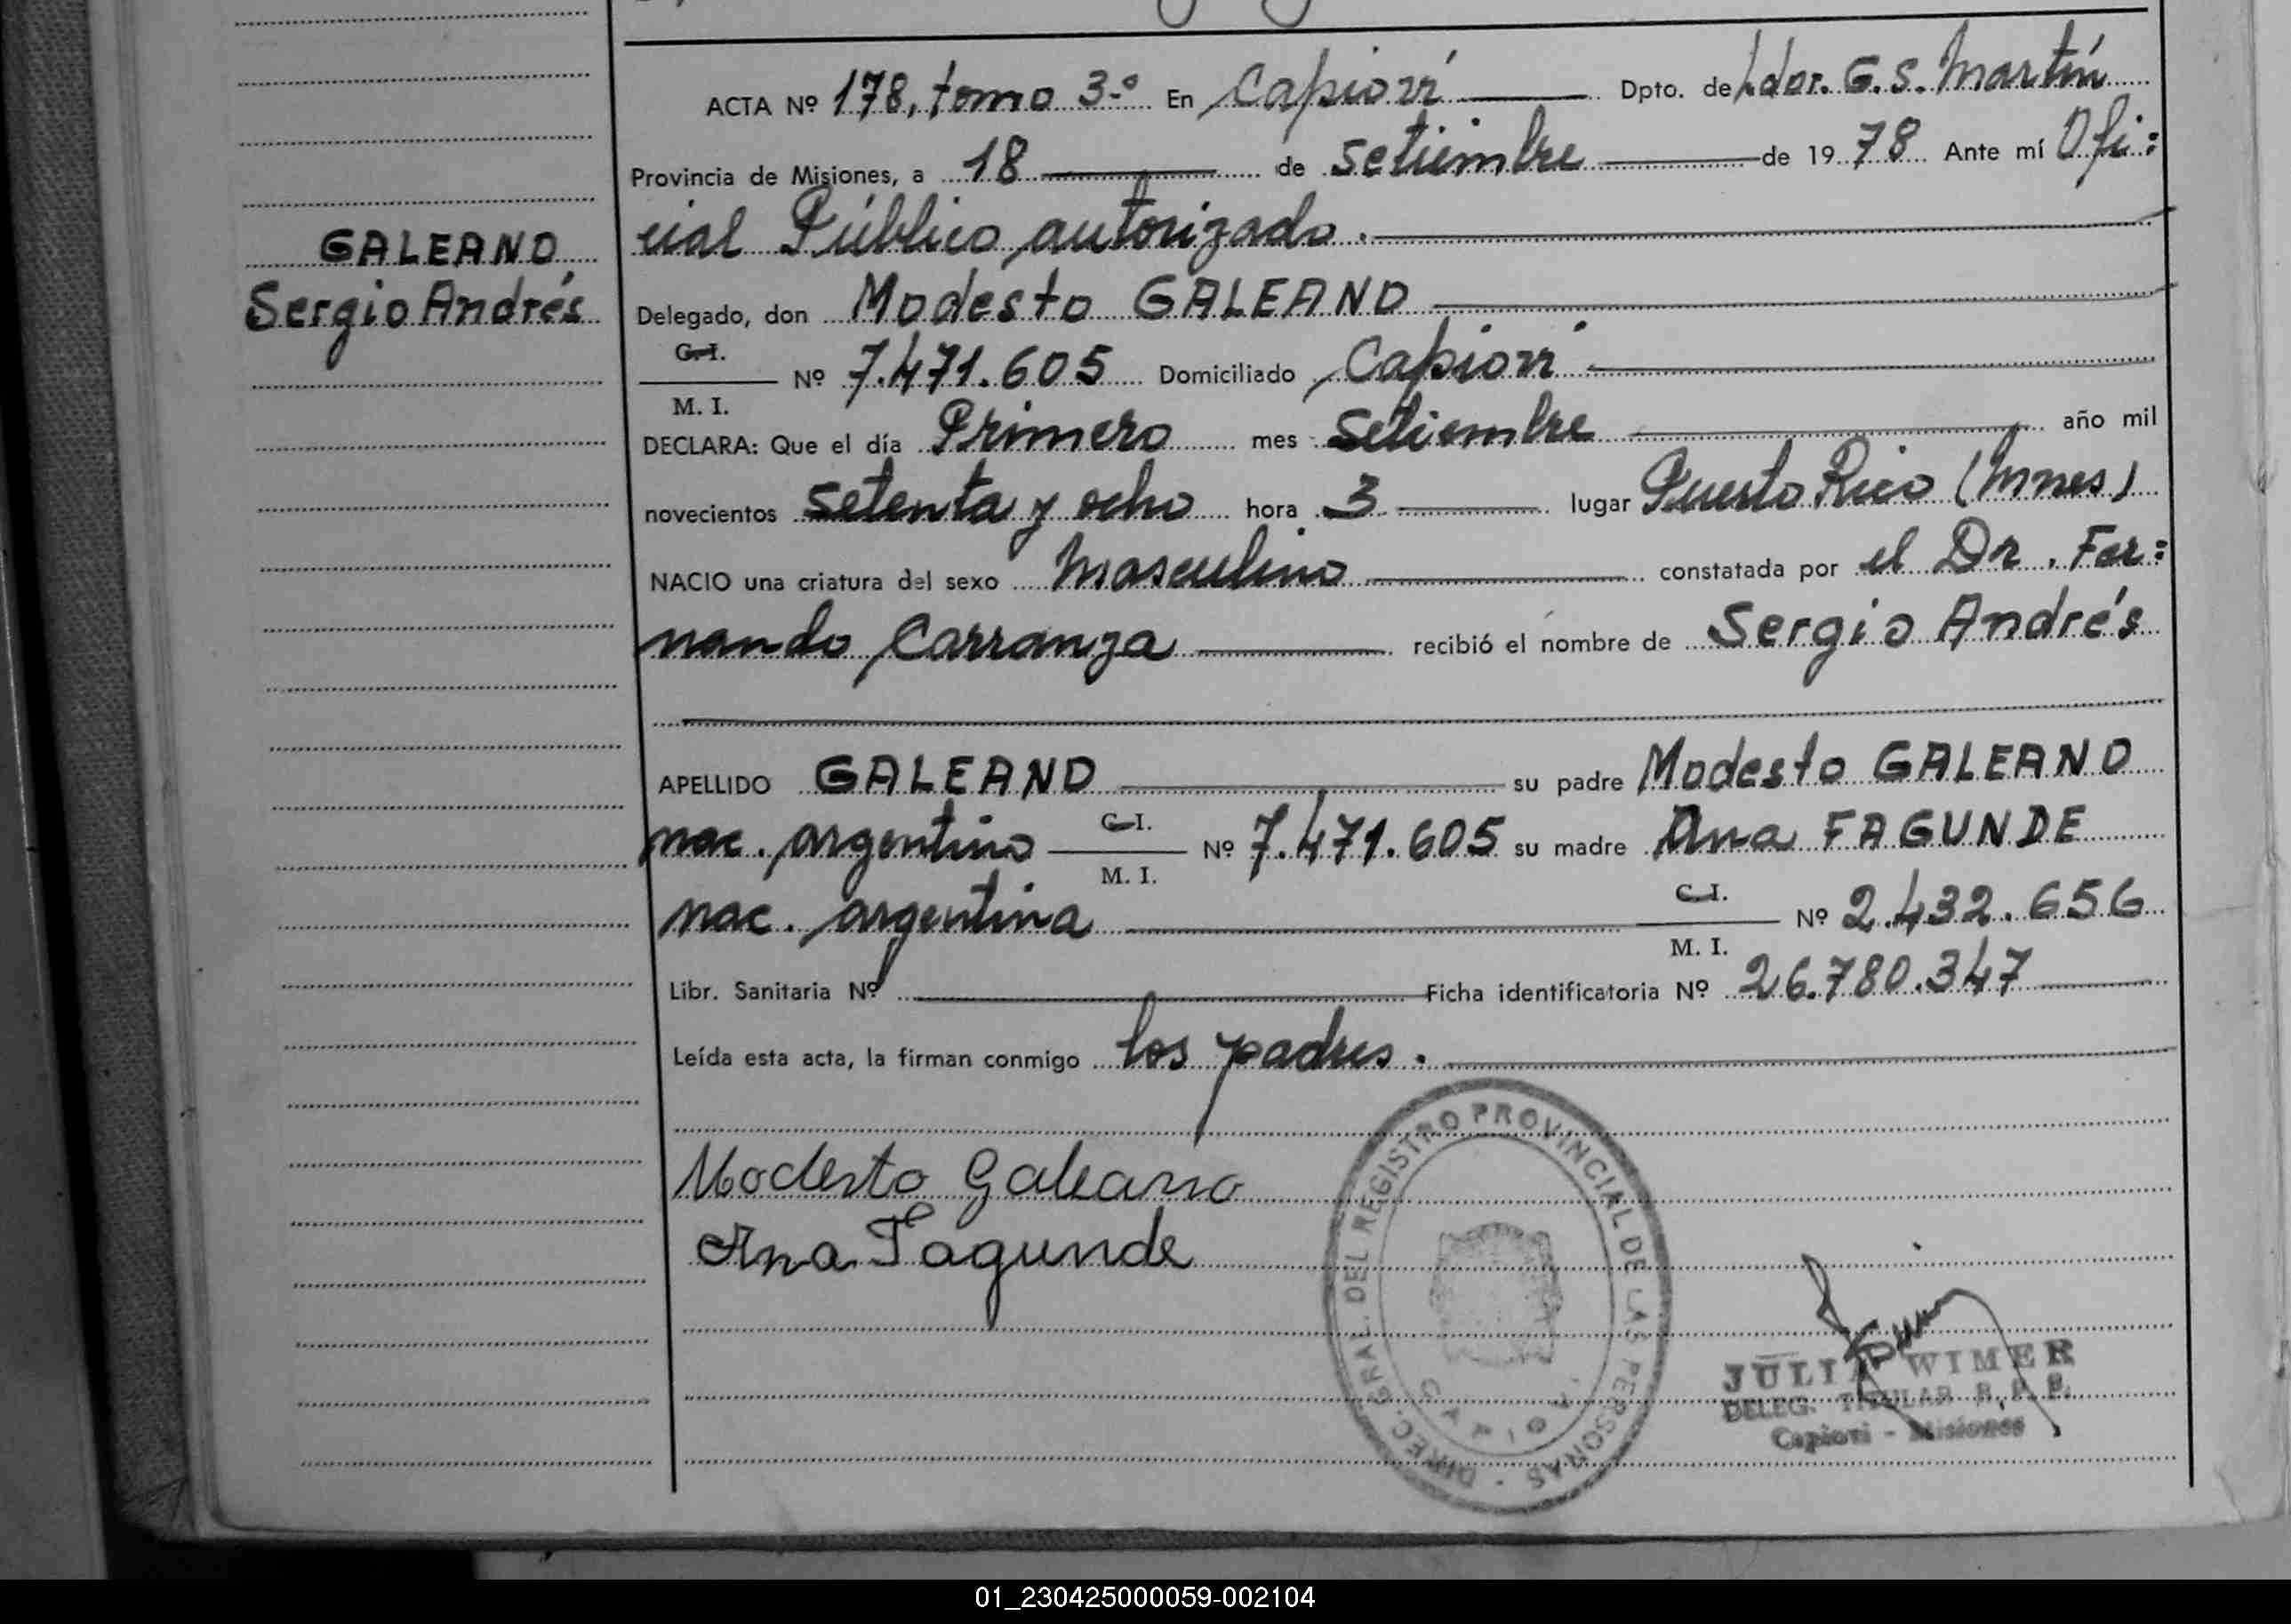 ACTA Nº 178, tomo 3º En Capioví Dpto. de Ldor. G. S. Martín
Provincia de Misiones, a 18 de setiembre de 1978 Ante mí Ofi=
cial Público autorizado.
GALEANO,
Sergio Andrés
Delegado, don Modesto GALEANO
C. I.
M. I.
Nº 7.471.605 Domiciliado Capioví
DECLARA: Que el día Primero mes Setiembre año mil
novecientos setenta y ocho hora 3 lugar Puerto Rico (Mnes)
NACIO una criatura del sexo Masculino constatada por el Dr. Fer=
nando Carranza recibió el nombre de Sergio Andrés
APELLIDO GALEANO su padre Modesto GALEANO
nac. argentino C. I.
M. I.
Nº 7.471.605 su madre Ana FAGUNDE
nac. argentina C. I.
M. I.
Nº 2.432.656
Libr. Sanitaria Nº Ficha identificatoria Nº 26.780.347
Leída esta acta, la firman conmigo los padres.
Modesto Galeano
Ana Fagunde
DIREC. GRAL. DEL REGISTRO PROVINCIAL DE LAS PERSONAS -
CAPIOVI
JULIA WIMER
DELEG. TITULAR R. P. P.
Capiovi - Misiones
01_230425000059-002104